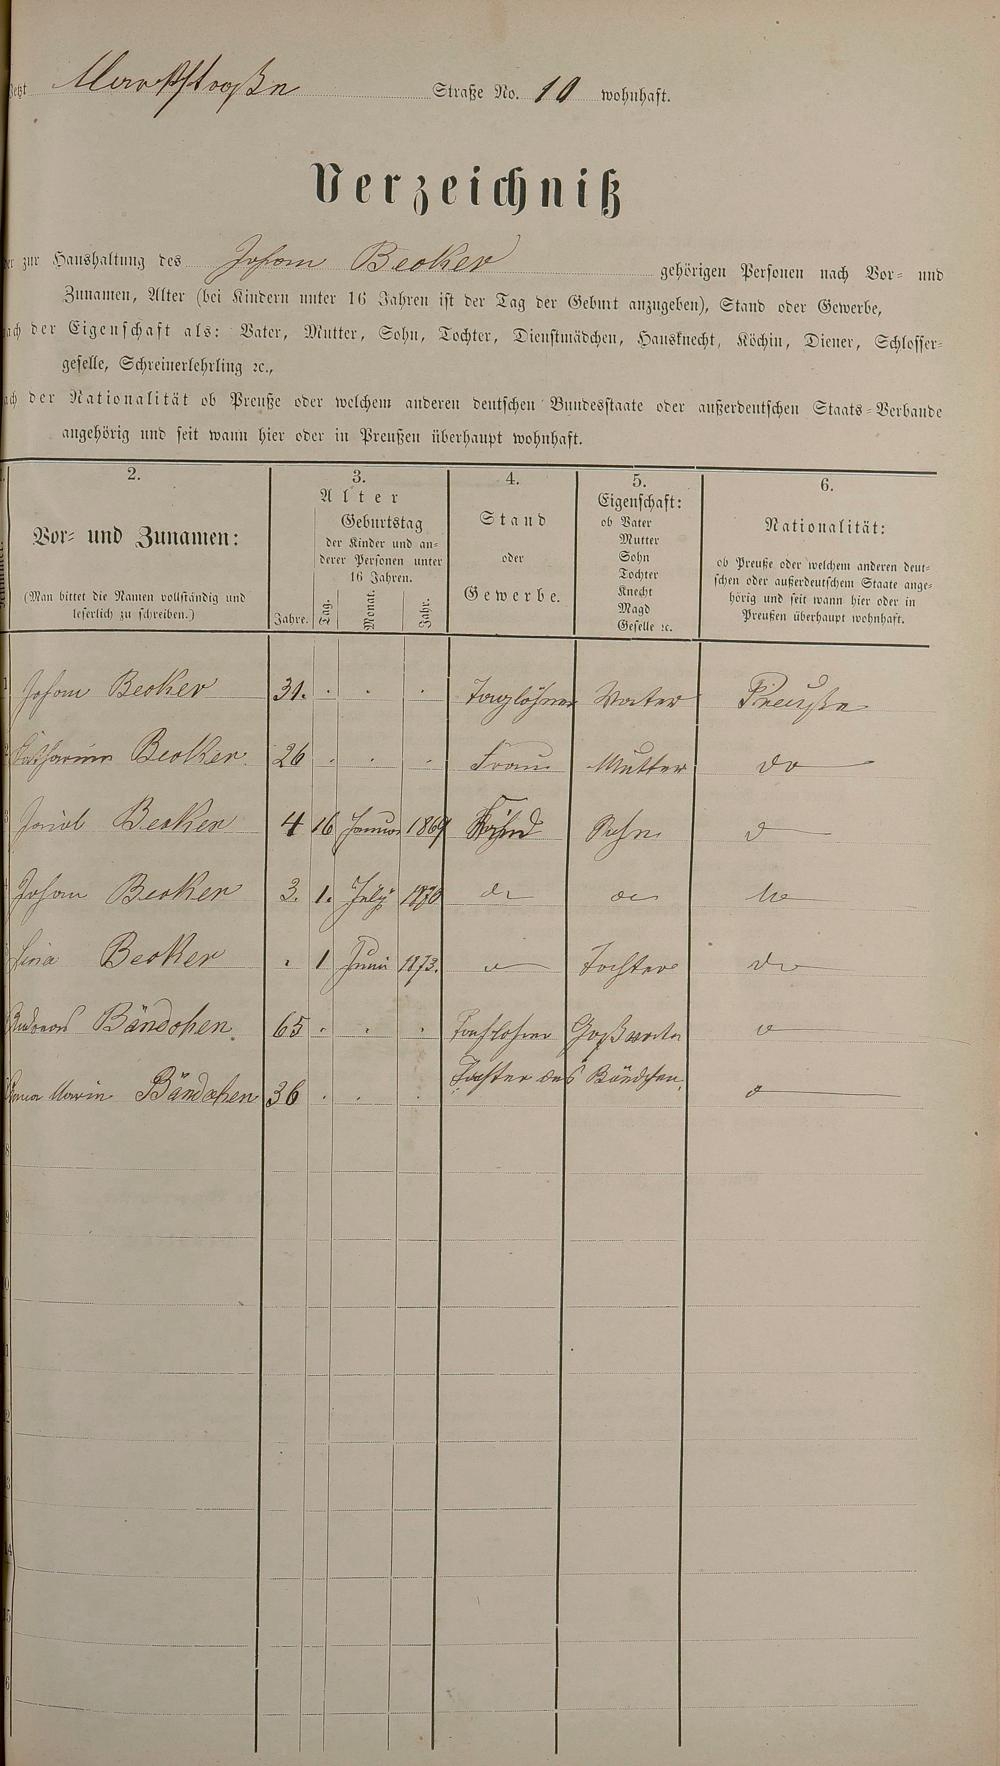 Jetzt Marktstraße Straße No. 10 wohnhaft.
Verzeichniß
der zur Haushaltung des Johann Becker gehörigen Personen nach Vor- und
Zunamen, Alter (bei Kindern unter 16 Jahren ist der Tag der Geburt anzugeben), Stand oder Gewerbe,
nach der Eigenschaft als: Vater, Mutter, Sohn, Tochter, Dienstmädchen, Hausknecht, Köchin, Diener, Schlosser-
geselle, Schreinerlehrling ꝛc.,
nach der Nationalität ob Preuße oder welchem anderen deutschen Bundesstaate oder außerdeutschen Staats-Verbande
angehörig und seit wann hier oder in Preußen überhaupt wohnhaft.
2.
Vor- und Zunamen:
(Man bittet die Namen vollständig und
leserlich zu schreiben.)
3.
Alter
Geburtstag
der Kinder und an-
derer Personen unter
16 Jahren.
Jahre. Tag. Monat. Jahr.
4.
Stand
oder
Gewerbe.
5.
Eigenschaft:
ob Vater
Mutter
Sohn
Tochter
Knecht
Magd
Geselle ꝛc.
6.
Nationalität:
ob Preuße oder welchem anderen deut-
schen oder außerdeutschem Staate ange-
hörig und seit wann hier oder in
Preußen überhaupt wohnhaft.
1 Johann Becker 31. . . . Taglöhner Vater Preuße
2 Katharina Becker 26 . . . Frau Mutter do
3 Jacob Becker 4 16 Januar 1869 Kind Sohn d
4 Johann Becker 3. 1. July 1870 do do
5 Lina Becker . 1 Juni 1873. Tochter do
Andreas Bändchen 65 . . . Großvater
Anna Maria Bändchen 36 . . . Tochter des Bändchen.
8
9
10
11
12
13
14
15
16